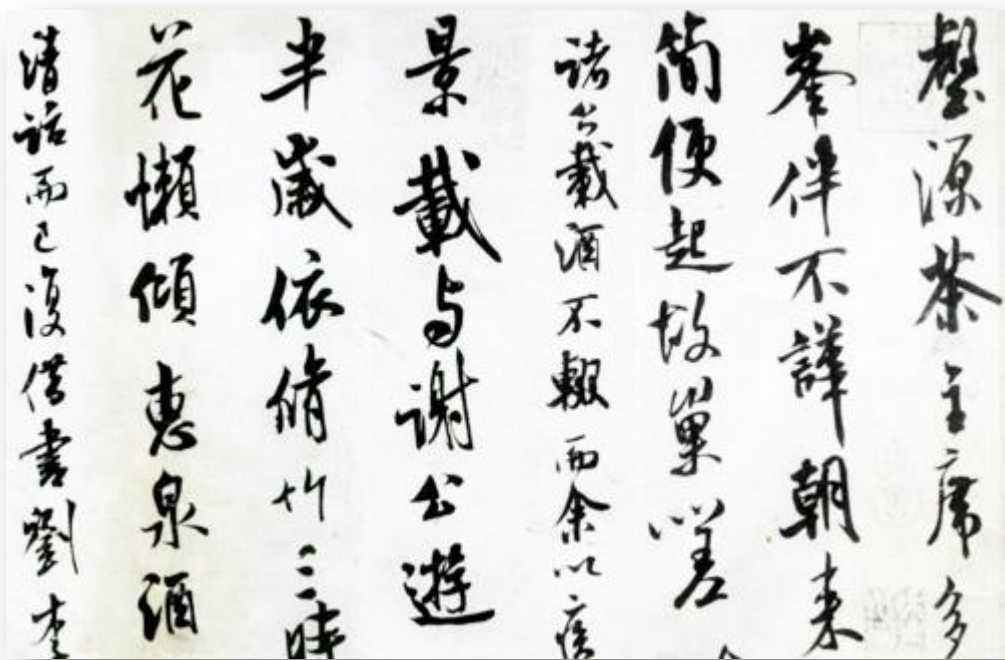 壑源茶主席多
峯伴不譁朝来
簡便起故巢嗟
諸公載酒不輟而余以疾
景載与謝公遊
半歲依脩竹三時
花懶傾惠泉酒
清話而已復借書劉李